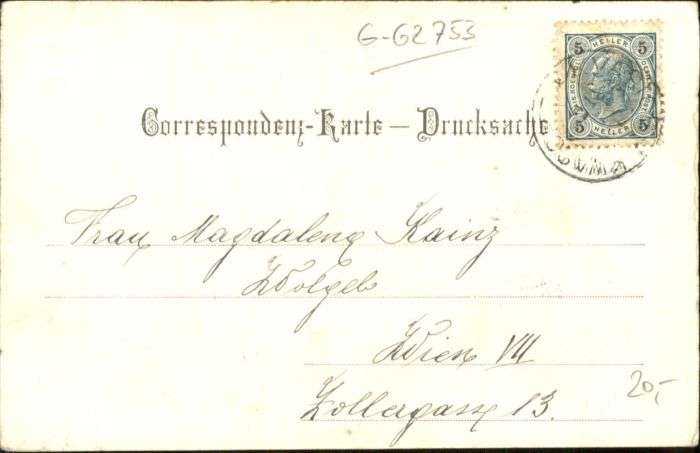 G-G2753
5 HELLER 5
5 HELLER 5
Correspondenz-Karte — Drucksache
Frau Magdalena Kainz
Wien VII
20,-
Zollergasse 13.